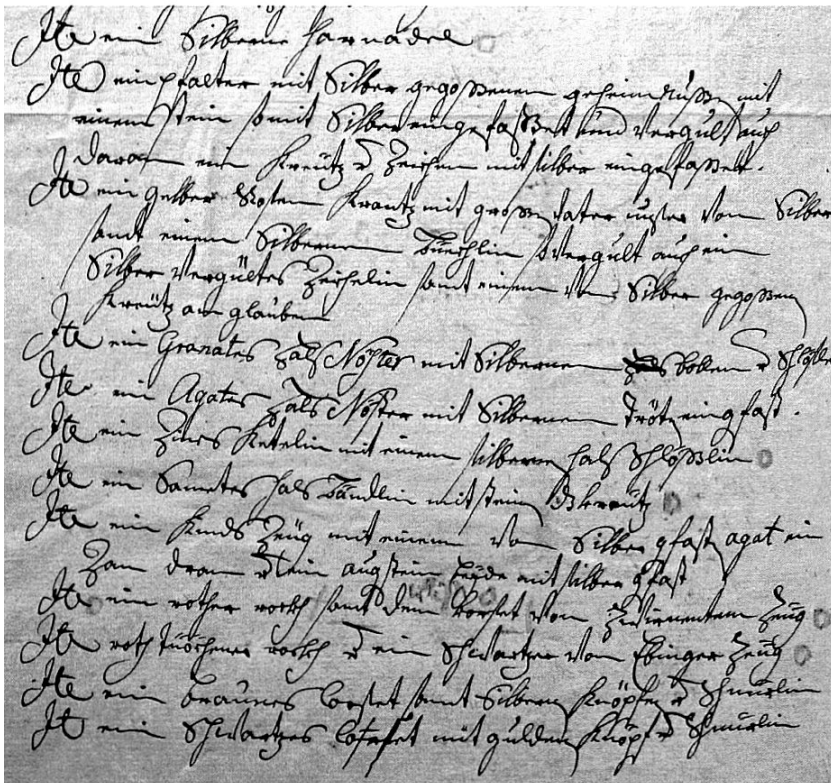 Ite ein Silberne harnadel
Ite ein psalter mit Silber gegoßenem geheimnußen mit
einem stein so mit Silber eingefaßet und vergult auch
daran ein Kreutz Zeichen mit silber eingefaßett.
Ite ein gelber Rosen Krantz mit großen vater unser vom Silber
samt einem Silbernem büechlin so vergult auch ein
Silber vergültes Zeichelin samt einem von Silber gegoßen
Kreütz am glauben
Ite ein Granates Hals Nöster mit Silbernem bollen
Ite ein Agates Hals Nöster mit Silbernem eingfast.
Ite ein Ketelin mit einem silbernen hals Schlößlin
Ite ein Sametes hals Bändlin mit stein kreütz
Ite ein Kinds Zeüg mit einem vom Silber gfast agat ein
Zan dran ein augstein beyde mit silber gfast
Ite ein rother rockh samt dem korset von Zeüg
Ite roth tüöchener rockh ein Schwartzer vom Ebinger Zeüg
Ite ein braunes korset samt Silbern Knöpfen Schnurlin
Ite ein Schwartzes korset mit gulden Knöpf Schnurlin